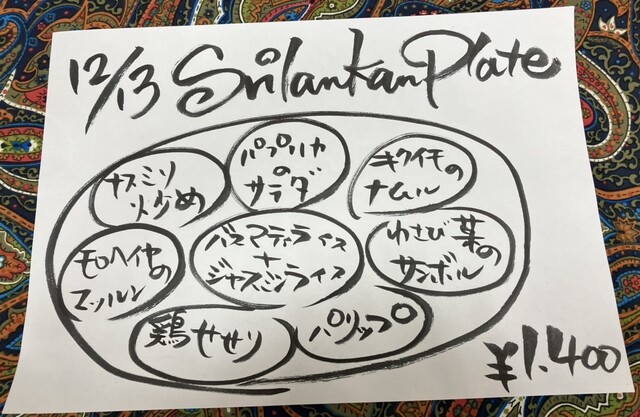 12/13 SriLankanPlate
ナスミソ
炒め
パプリカ
の
サラダ
キクイモの
ナムル
モロヘイヤの
マッルン
バスマティライス
+
ジャスミンライス
わさび葉の
サンボル
鶏せせり
パリップ
¥1.400